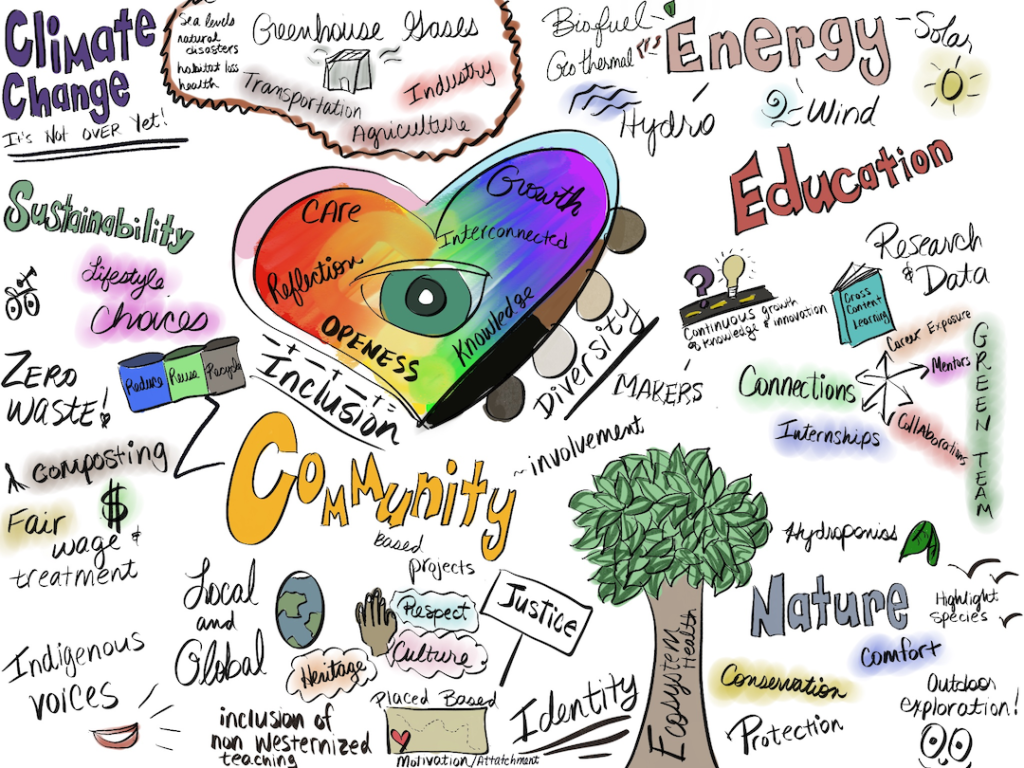 Climate
Change
It's Not OVER Yet!
Sea levels
natural
disasters
habitat loss
health
Greenhouse Gases
Transportation
Industry
Agriculture
Biofuel
Geothermal
Energy
Solar
Hydro
Wind
Sustainability
Lifestyle
Choices
ZERO
WASTE!
Reduce
Reuse
Recycle
composting
Fair
wage &
treatment
$
CAre
Reflection
OPENESS
Growth
Interconnected
Knowledge
Inclusion
Diversity
Education
Research
& Data
?
Continuous growth
of knowledge & innovation
Cross
Content
Learning
MAKERS
Connections
Internships
Career Exposure
Mentors
Collaborations
GREEN TEAM
Community
~involvement
Based
projects
Local
and
Global
Respect
Culture
Heritage
Justice
Indigenous
voices
inclusion of
non Westernized
teaching
Placed Based
Motivation/Attatchment
Identity
Ecosystem
Health
Hydroponics
Nature
Highlight
Species
Comfort
Conservation
Protection
Outdoor
exploration!